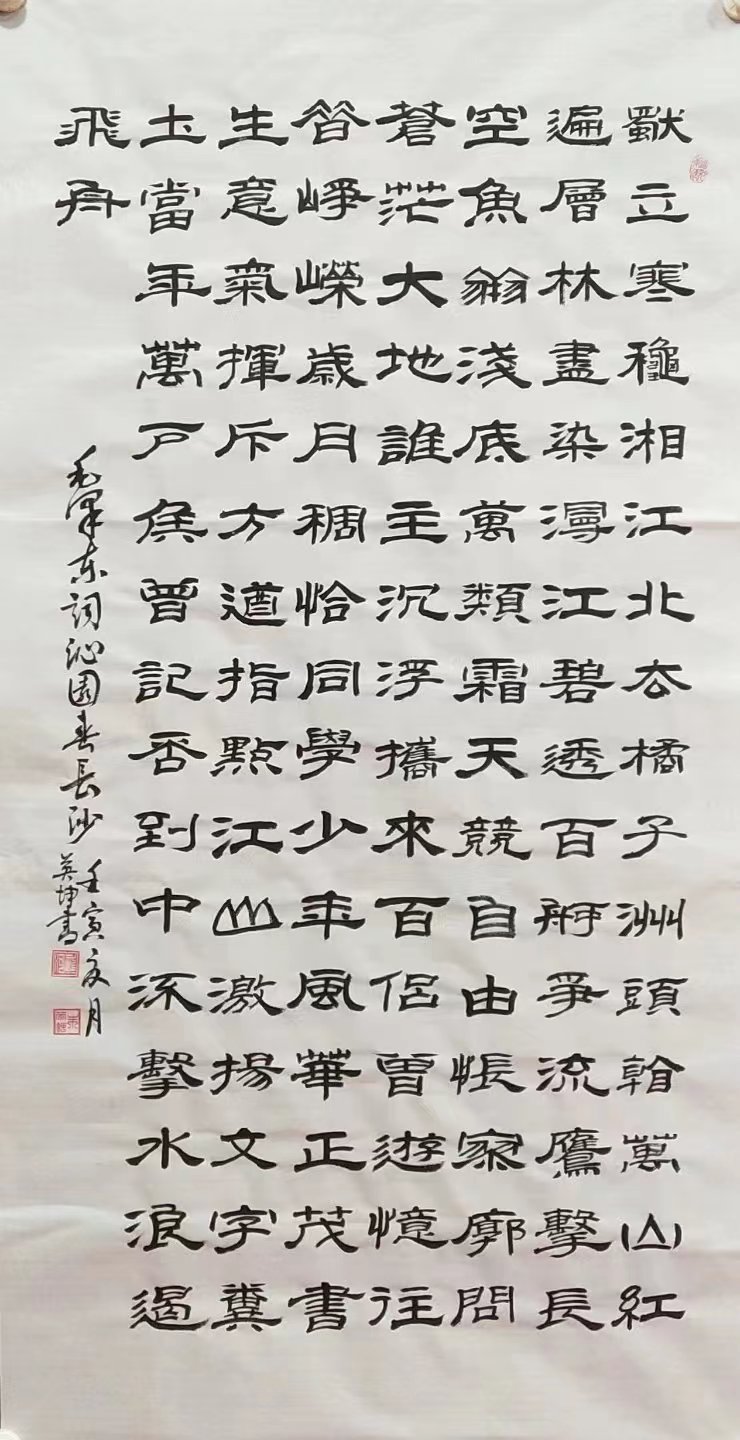 獨立寒龝湘江北去橘子洲頭看萬山紅
遍層林盡染漫江碧透百舸爭流鷹擊長
空魚翔淺底萬類霜天競自由悵寥廓問
蒼茫大地誰主沉浮攜來百侶曾遊憶往
昔崢嶸歲月稠恰同學少年風華正茂書
生意氣揮斥方遒指點江山激揚文字糞
土當年萬戶侯曾記否到中流擊水浪遏
飛舟
毛澤东詞沁園春長沙
壬寅夏月
英坤書